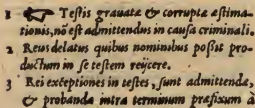 1 ☞ Testis grauatæ & corruptæ æstima-
tionis, nõ est admittendus in causa criminali.
2 Reus delatus quibus nominibus possit pro-
ductum in se testem reijcere.
3 Rei exceptiones in testes, sunt admittendæ,
& probandæ intra terminum præfixum à